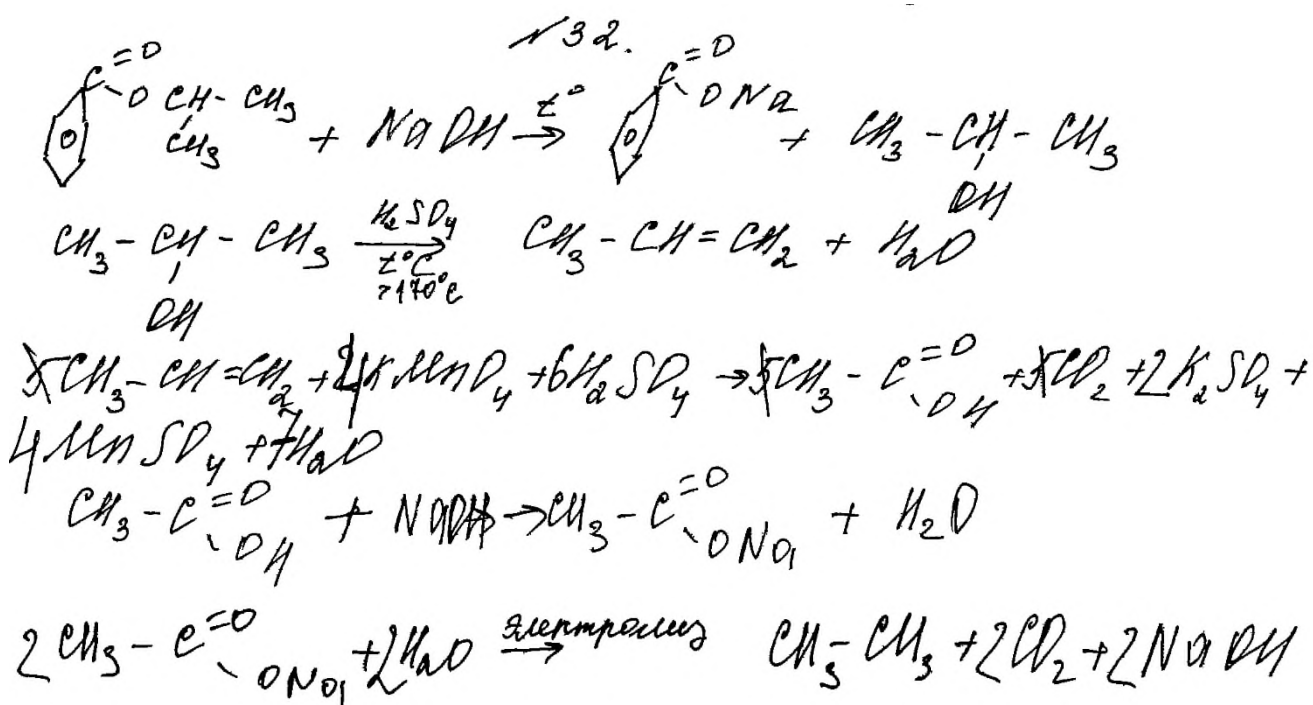 №32.
C=O O CH-CH3 CH3 + NaOH t° → C=O ONa + CH3-CH-CH3 OH
CH3-CH-CH3 OH H2SO4 t°C >170°C → CH3-CH=CH2 + H2O
CH3-CH=CH2 + KMnO4 + 6H2SO4 → CH3-C=O OH + CO2 + 2K2SO4 +
4MnSO4 + 7H2O
CH3-C=O OH + NaOH → CH3-C=O ONa + H2O
2CH3-C=O ONa + 2H2O электролиз → CH3-CH3 + 2CO2 + 2NaOH